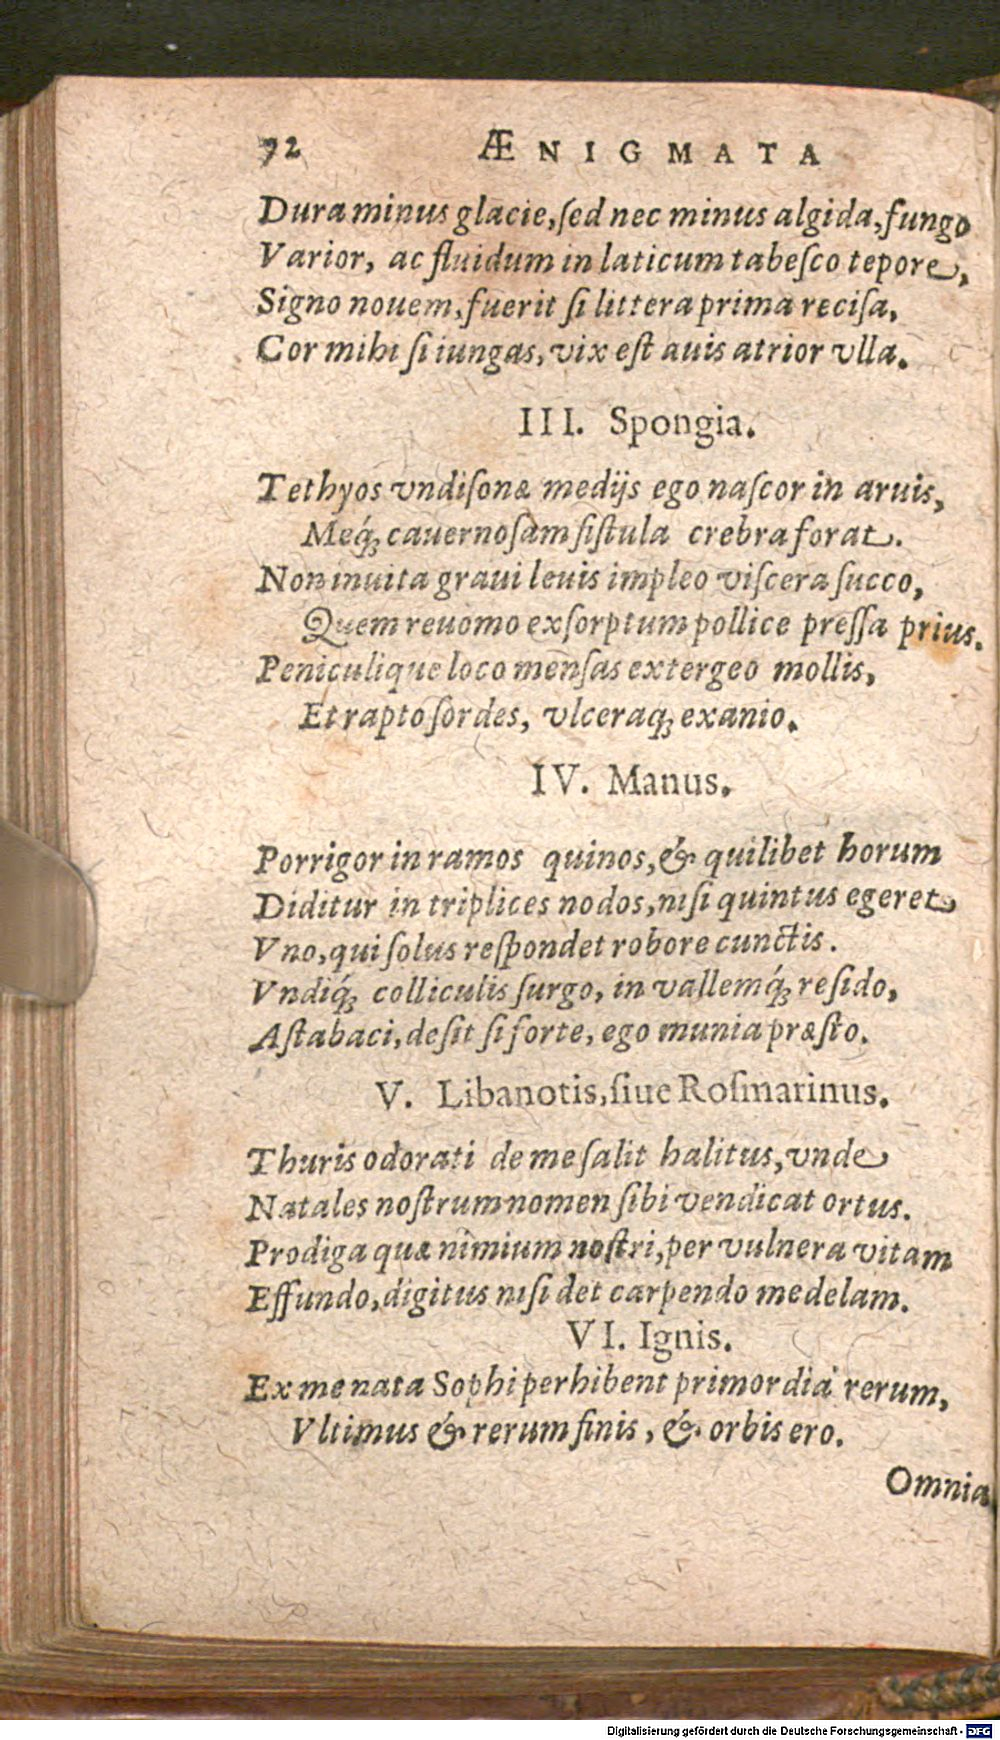 92 ÆNIGMATA
Dura minus glacie, ſed nec minus algida, fungo
Varior, ac fluidum in laticum tabeſco tepore,
Signo nouem, fuerit ſi littera prima reciſa,
Cor mihi ſi iungas, vix eſt auis atrior vlla.
III. Spongia.
Tethyos vndiſonæ medijs ego naſcor in aruis,
Meq́; cauernoſam fiſtula crebra forat.
Non inuita graui leuis impleo viſcera ſucco,
Quem reuomo exſorptum pollice preſſa prius.
Peniculique loco menſas extergeo mollis,
Et rapto ſordes, vlceraq; exanio.
IV. Manus.
Porrigor in ramos quinos, & quilibet horum
Diditur in triplices nodos, niſi quintus egeret
Vno, qui ſolus reſpondet robore cunctis.
Vndiq́; colliculis ſurgo, in vallemq́; reſido,
Aſtabaci, deſit ſi forte, ego munia præſto.
V. Libanotis, ſiue Roſmarinus.
Thuris odorati de me ſalit halitus, vnde
Natales noſtrum nomen ſibi vendicat ortus.
Prodiga quæ nimium noſtri, per vulnera vitam
Effundo, digitus niſi det carpendo medelam.
VI. Ignis.
Ex me nata Sophi perhibent primordia rerum,
Vltimus & rerum finis, & orbis ero.
Omnia
Digitalisierung gefördert durch die Deutsche Forschungsgemeinschaft - DFG